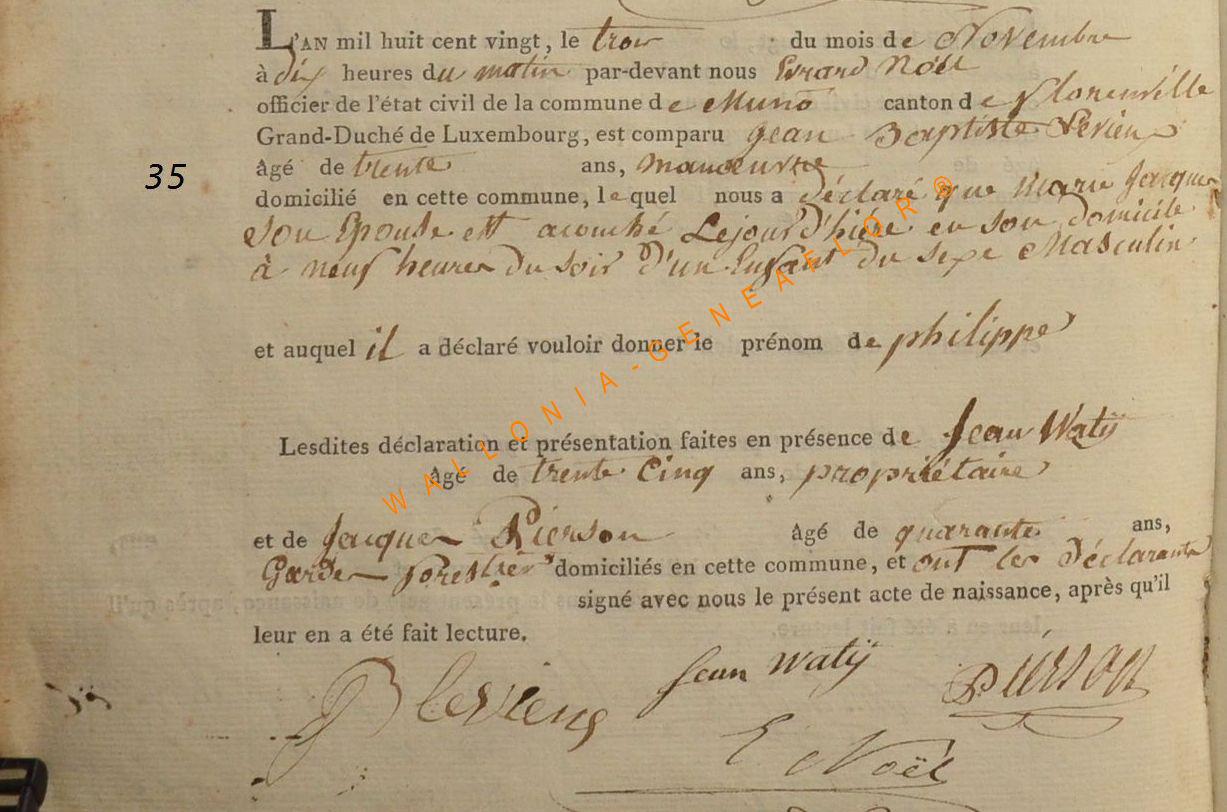 L'AN mil huit cent vingt, le trois du mois de Novembre
à dix heures du matin par-devant nous Evrard Noël
officier de l'état civil de la commune de Muno canton de florenville
Grand-Duché de Luxembourg, est comparu jean Baptiste
35
âgé de trente ans, manoeuvre
domicilié en cette commune, lequel nous a déclaré que Marie Jacques
son Epouse est acouché Lejour d'hière en son domicile
à neuf heures du soir d'un Enfant du sexe Masculin
et auquel il a déclaré vouloir donner le prénom de philippe
Lesdites déclaration et présentation faites en présence de Jean Watÿ
âgé de trente Cinq ans, propriétaire
et de Jacques Pierson âgé de quarante ans,
Gardes forestier domiciliés en cette commune, et ont les déclarants
signé avec nous le présent acte de naissance, après qu'il
leur en a été fait lecture.
Jean Watÿ
Pierson
E Noël
WALLONIA-GENEAFLOR®